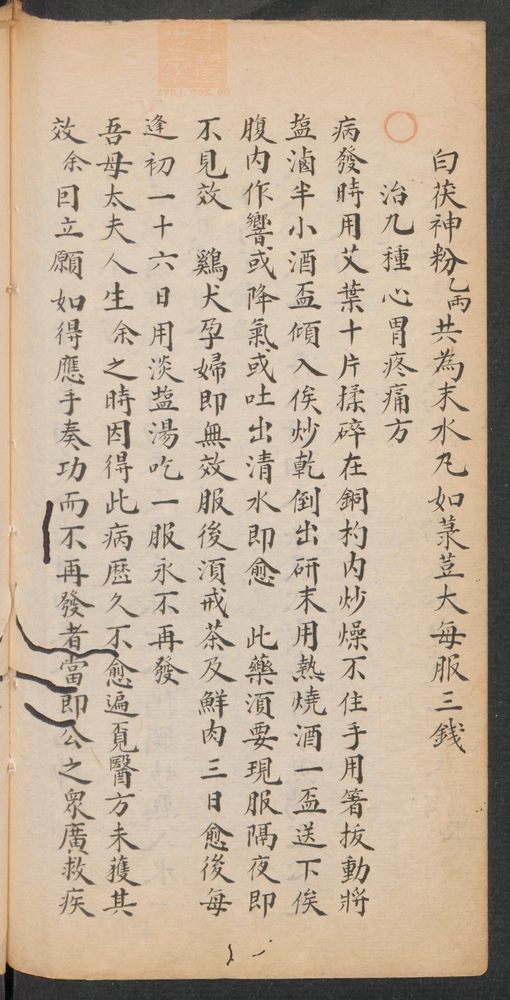 白茯神粉乙両共為末水凡如菉荳大每服三錢
治九種心胃疼痛方
病發時用艾葉十片揉碎在銅杓內炒燥不住手用箸抜動將
塩滷半小酒盃傾入俟炒乾倒出研末用熱燒酒一盃送下俟
腹內作響或降氣或吐出清水即愈 此藥湏要現服隔夜即
不見效 鷄犬孕婦即無效服後湏戒茶及鮮肉三日愈後每
逢初一十六日用淡塩湯吃一服永不再發
吾母太夫人生余之時因得此病歷久不愈遍覔醫方未獲其
效余因立願如得應手奏功而不再發者當即公之眾廣救疾